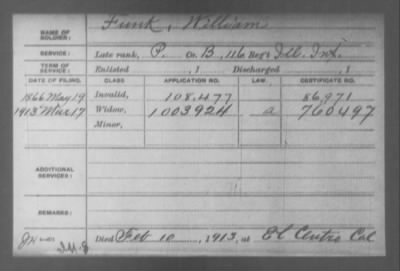 NAME OF SOLDIER: Funk, William
SERVICE: Late rank, P. Co. B, 116 Reg't Ill. Inf.
TERM OF SERVICE: Enlisted , 1 Discharged , 1
DATE OF FILING. CLASS APPLICATION NO. LAW. CERTIFICATE NO.
1866 May 19 Invalid, 108.477 86,971
1913 Mar 17 Widow, 1003924 a 760497
Minor,
ADDITIONAL SERVICES:
REMARKS:
Died Feb 10, 1913, at El Centro Cal